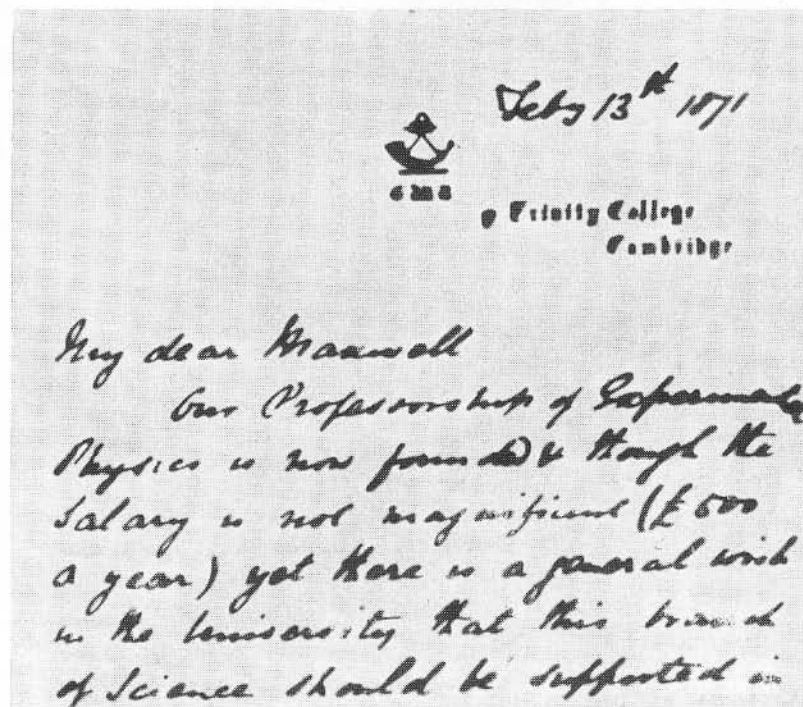 Feby 13th 1871
Trinity College
Cambridge
My dear Maxwell
Our Professorship of Experimental
Physics is now founded & though the
Salary is not magnificent (£500
a year) yet there is a general wish
in the University that this branch
of Science should be supported in